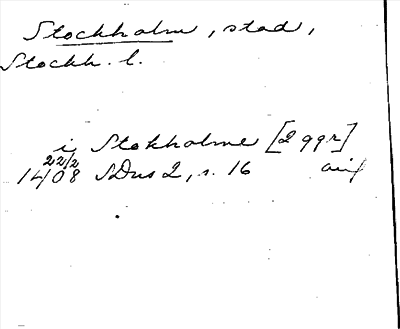 Stockholm, stad,
Stockh. l.
i Stokholme [2 ggr]
22/2
1408 SDns 2, s. 16 avf